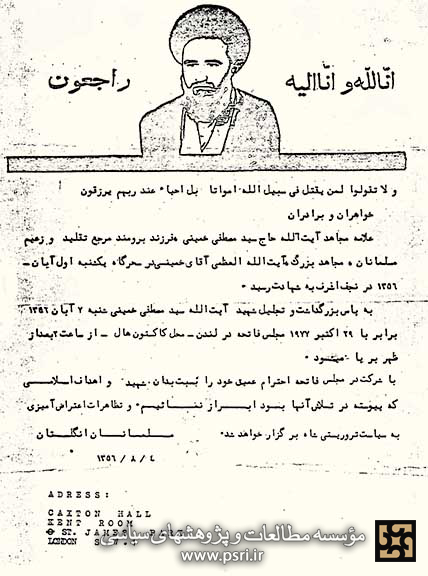 انّاللّه و انّاالیه راجعون
و لا تقولوا لمن یقتل فی سبیل الله امواتا بل احیاء عند ربهم یرزقون
خواهران و برادران
علامه مجاهد آیت‌الله حاج سید مصطفی خمینی فرزند برومند مرجع تقلید و زعیم
مسلمانان و مجاهد بزرگ آیت‌الله العظمی آقای خمینی در سحرگاه یکشنبه اول آبان -
۱۳۵۶ در نجف اشرف به شهادت رسید ·
به پاس بزرگداشت و تجلیل شهید آیت‌الله سید مصطفی خمینی شنبه ۷ آبان ۱۳۵۶
برابر با ۲۹ اکتبر ۱۹۷۷ مجلس فاتحه در لندن - محل کاکستون هال - از ساعت ۲ بعداز
ظهر برپا میشود ·
با شرکت در مجلس فاتحه احترام عمیق خود را نسبت بدان شهید و اهداف اسلامی
که پیوسته در تلاش آنها بود ابراز نمائیم · و تظاهرات اعتراض آمیزی
به سیاست تروریستی شاه برگزار خواهد شد ·
مسلمانان انگلستان
/ ۸ / ۱۳۵۶
ADRESS:
CAXTON HALL
KENT ROOM
ST. JAMES PARK
LONDON S.W.1
مؤسسه مطالعات و پژوهشهای سیاسی
www.psri.ir